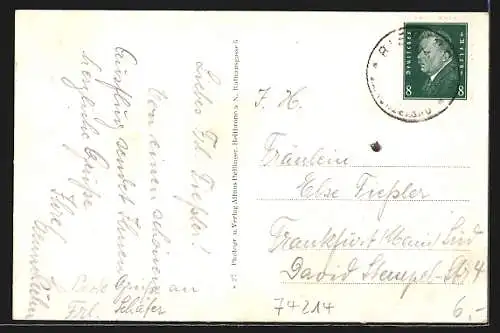 Liebes Frl. Treßler!
Von einem schönen
Ausflug sendet Ihnen
herzliche Grüße
Ihre
Anneliese
Viele Grüße an
Frl. Schäfer
27. Photogr. u. Verlag Alfons Dellinger, Heilbronn a. N.
Deutsches Reich
8 8
F. H.
Fräulein
Else Treßler
Frankfurt/Main Süd
David Stempel-Str. 4
74214
6,-